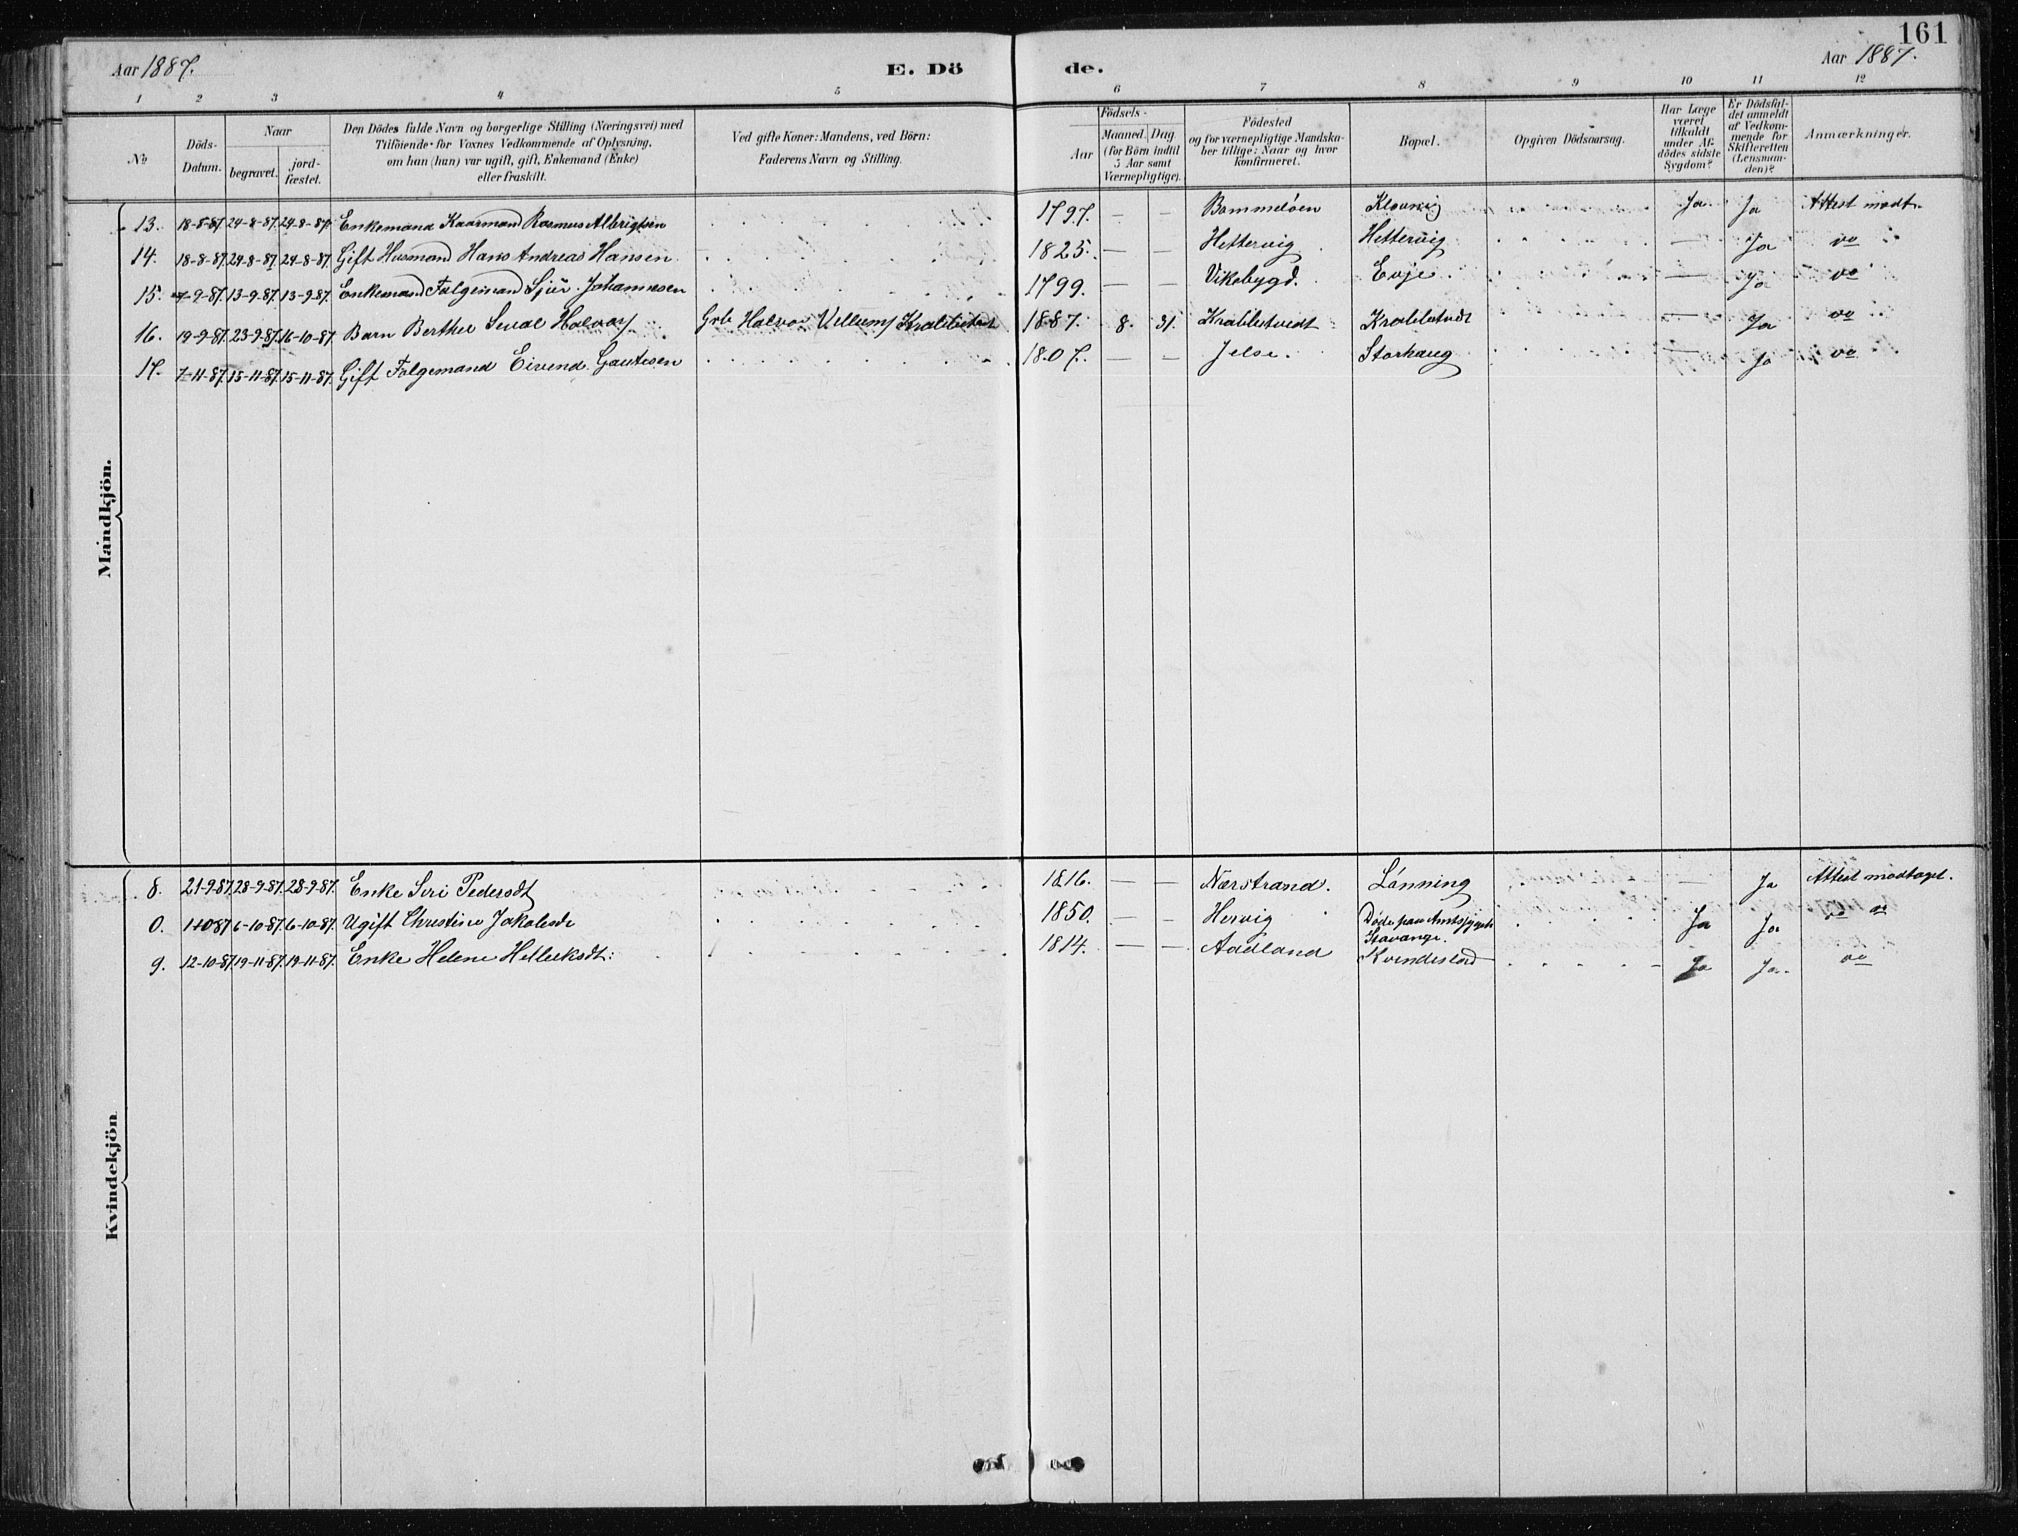 161
Aar 1887.
E. Dö
de.
Aar 1887.
1 2 3 4 5 6 7 8 9 10 11 12
No
Döds-Datum.
Naar
begravet.
jord-fæstet.
Den Dödes fulde Navn og borgerlige Stilling (Næringsvei) med
Tilföiende for Voxnes Vedkommende af Oplysning,
om han (hun) var ugift, gift, Enkemand (Enke)
eller fraskilt.
Ved gifte Koner: Mandens, ved Börn:
Faderens Navn og Stilling.
Födsels-
Aar
Maaned. Dag
(for Börn indtil
5 Aar samt
Værnepligtige).
Födested
og for værnepligtige Mandska-
ber tillige: Naar og hvor
konfirmeret.
Bopæl.
Opgiven Dödsaarsag.
Har Læge
været
tilkaldt
under Af-
dödes sidste
Sygdom?
Er Dödsfal-
det anmeldt
af Vedkom-
mende for
Skifteretten
(Lensman-
den)?
Anmærkninger.
Mandkjön.
13. 18-8-87. 24-8-87. 24-8-87. Enkemand Kaarmand Rasmus Albrigtsen 1797. — — Bommeløen Ja Ja Attest modt.
14. 18-8-87. 24-8-87. 24-8-87. Gift Husmand Hans Andreas Hansen 1825. — — Hettervig Hettervig — Ja do
15. 7-9-87. 13-9-87. 13-9-87. Enkemand Folgemand Sjur Johannesen 1799. — — Vikebygd. Evje — Ja do
16. 19-9-87. 23-9-87. 16-10-87. Barn Berthel Seval Halvors. Grb Halvor Vellums Krabbetvedt 1887. 8. 31. Krabbetvedt Krabbetvedt — Ja do
17. 7-11-87. 15-11-87. 15-11-87. Gift Folgemand Eivend Gautesen 1807. — — Jelse. Storhaug — Ja do
Kvindekjön
8. 21-9-87. 28-9-87. 28-9-87. Enke Siri Pedersdt 1816. — — Nærstrand. Lønning — Ja Attest modtaget.
0. 1-10-87 6-10-87. 6-10-87. Ugift Christine Jakobsdt 1850. — — Hervig Døde paa Amtssygeh Stavanger. Ja Ja do
9. 12-10-87. 19-11-87. 19-11-87. Enke Helene 1814. — — Aadland Kvindesland Ja Ja. do